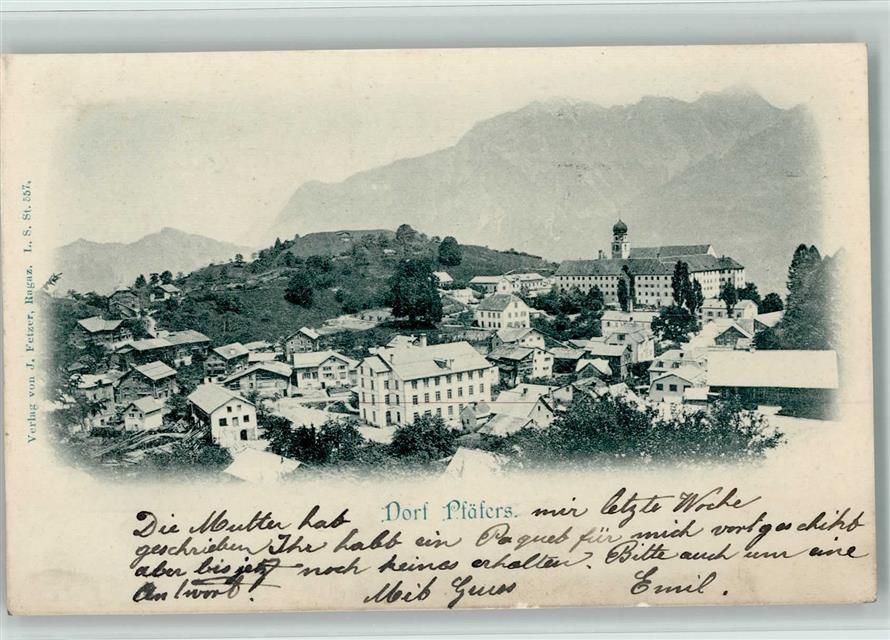 Verlag von J. Fetzer, Ragaz. L. S. St. 557.
Dorf Pfäfers.
Die Mutter hab mir letzte Woche
geschrieben Ihr habb ein Paqueb für mich vortgeschikb
aber bis jetz noch keines erhalten. Bitte auch um eine
Antworb. Meib Gruss Emil.